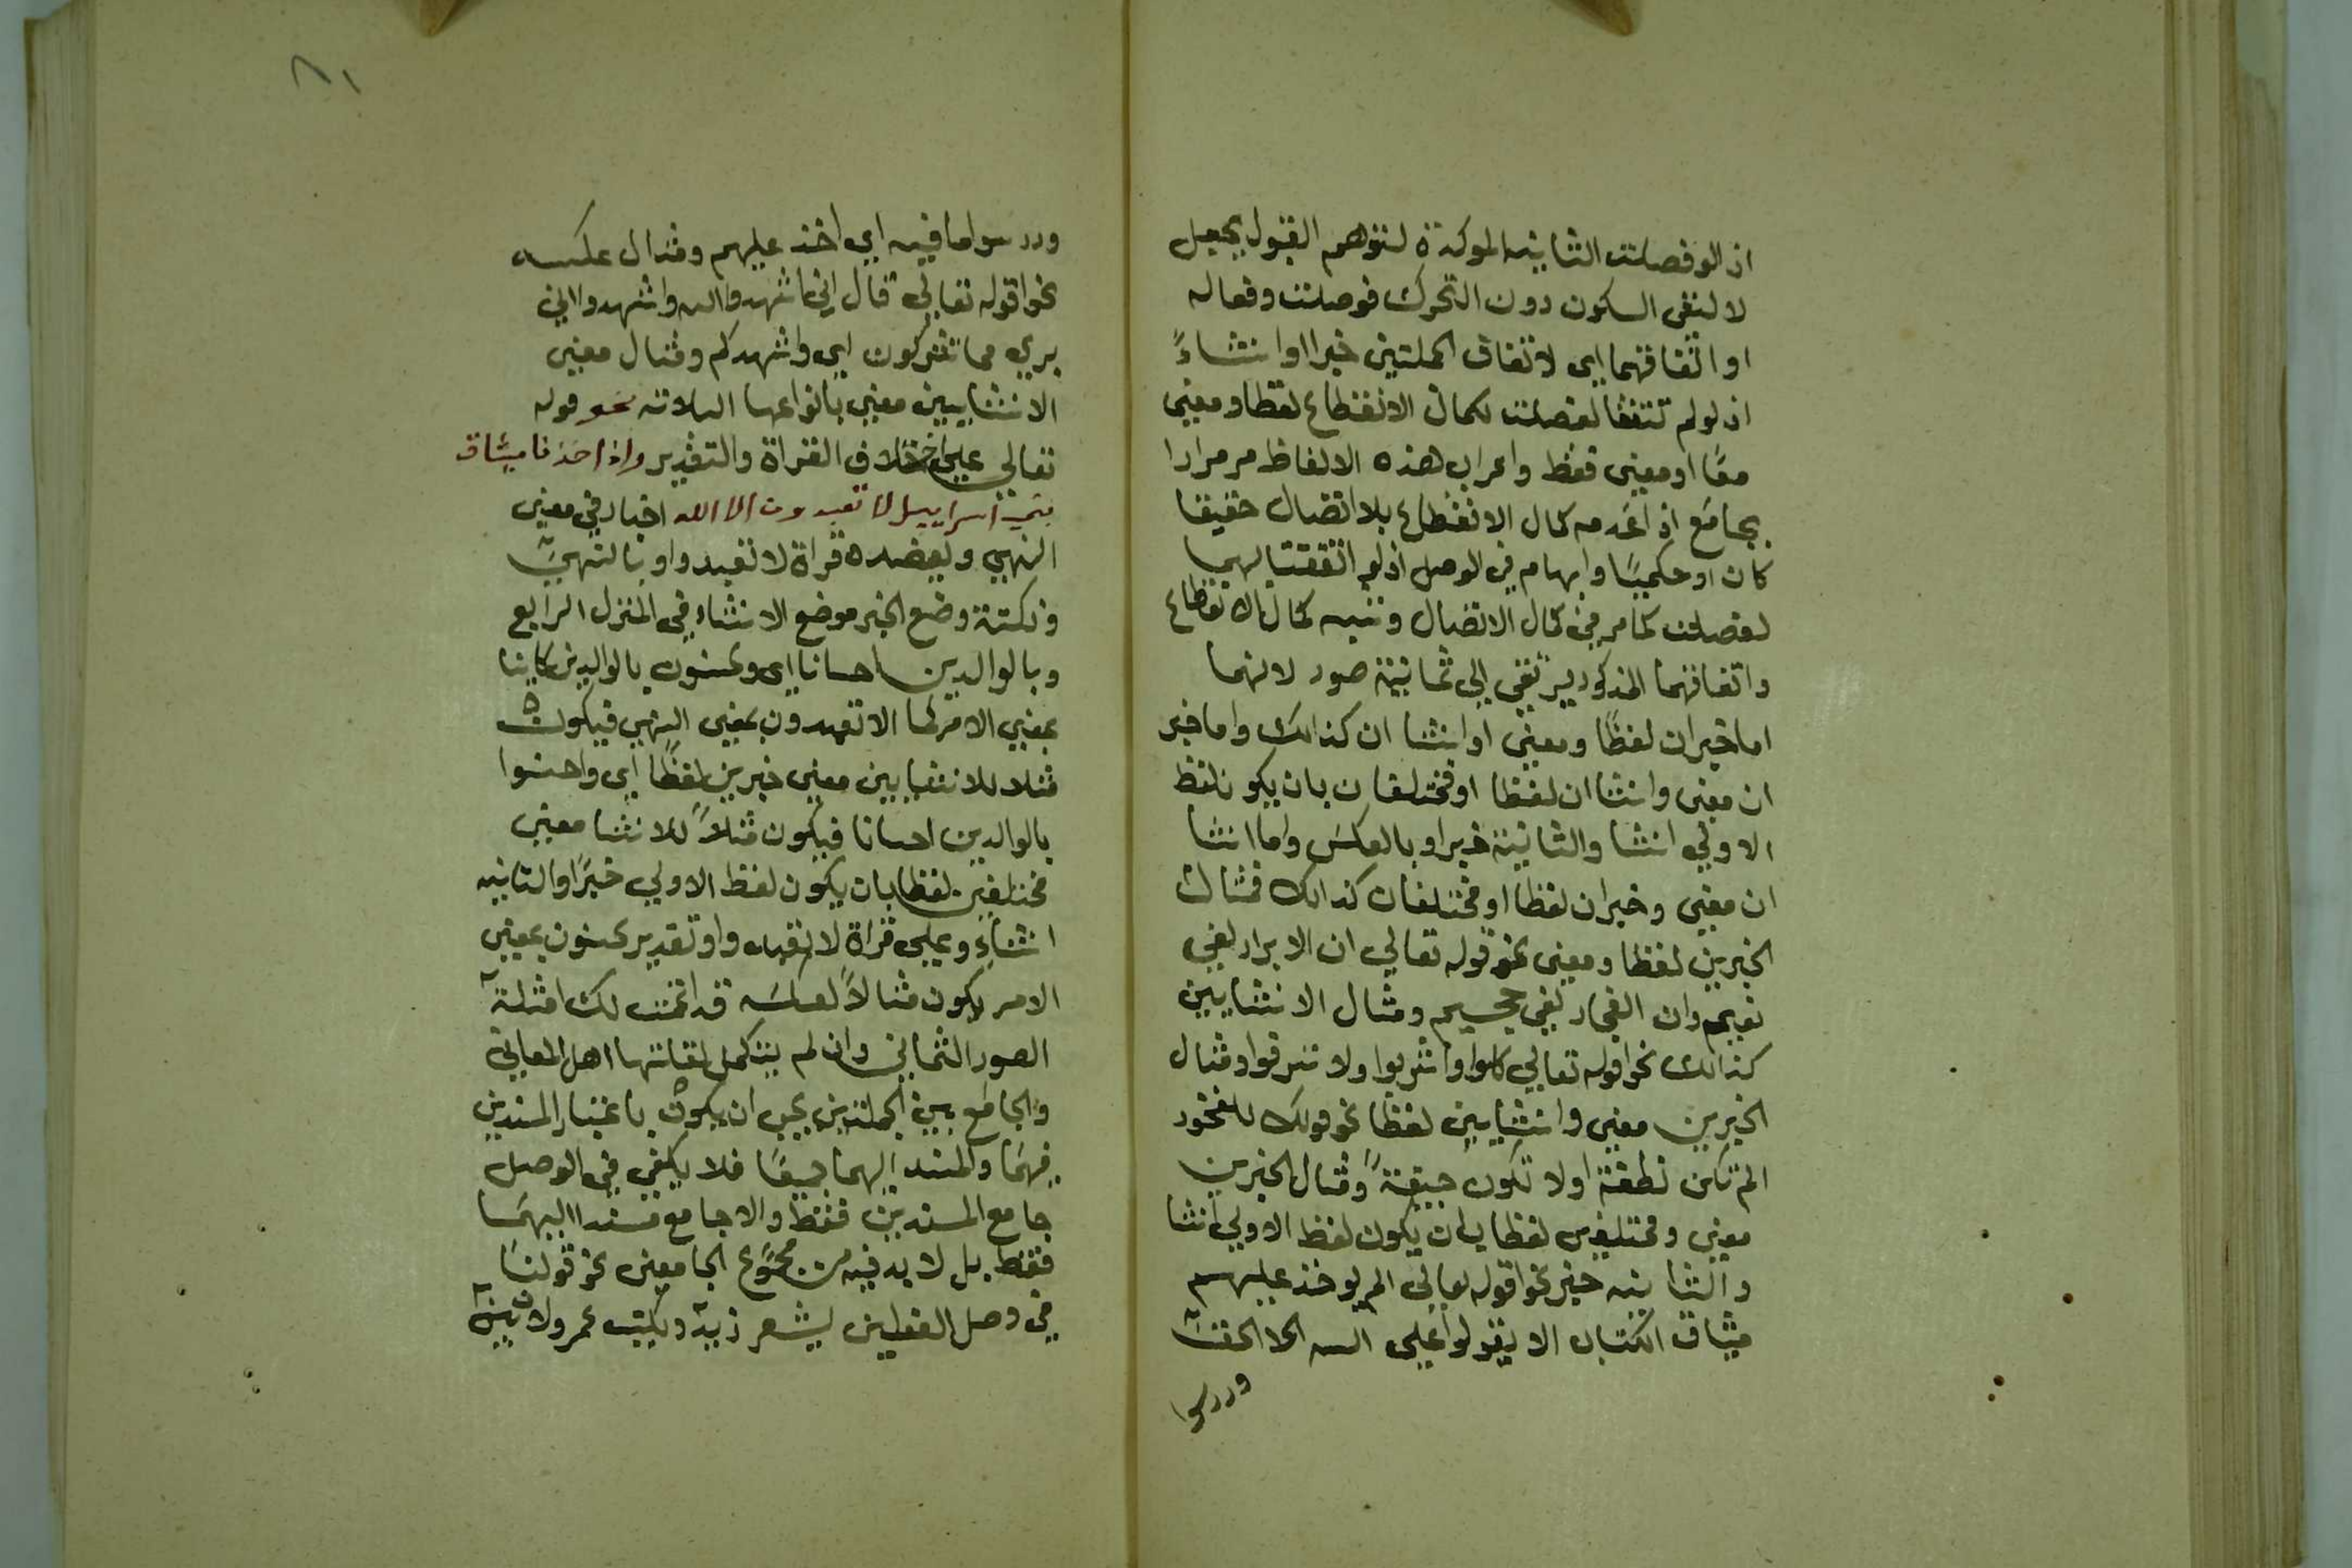 اذ لو فصلت الثانيه الموكدة لتوهم القبول بجعل
لا لنفى السكون دون التحرك فوصلت وفعاله
او اتفاقهما اى لاتفاق الجملتين خبرا او انشاءً
اذ لو لم تتفقا لفصلت لكمال الانقطاع لفظا ومعنى
معًا او معنى فقط واعراب هذه الالفاظ مر مرارا
بجامع اذ اعدمه كمال الانقطاع بلا اتصال حقيقا
كان او حكميًا وابهام فى الوصل اذ لو اتفقتا
لفصلت كما مر فى كمال الاتصال وشبه كمال الانقطاع
واتفاقهما المذكور يرتقى الى ثمانية صور لانهما
اما خبران لفظًا ومعنى او انشا ان كذالك واما خبر
ان معنى وانشا ان لفظا او مختلفان بان يكون لفظ
الاولى انشا والثانية خبرا وبالعكس واما انشا
ان معنى وخبران لفظا او مختلفان كذالك فمثال
الخبرين لفظا ومعنى نحو قوله تعالى ان الابرار لفى
نعيم وان الفجار لفى جحيم ومثال الانشايين
كذالك نحوا قوله تعالى كلوا واشربوا ولا تسرفوا ومثال
الخبرين معنى وانشايين لفظا نحو قولك للفخور
الم تكن نطفة اولا تكون جيفةً ومثال الخبرين
معنى ومختلفين لفظا بان يكون لفظ الاولى انشا
والثانيه خبر نحوا قوله تعالى الم يوخذ عليهم
ميثاق الكتاب الا يقولوا على الله الا الحق
ودرسوا
٨١
ودرسوا ما فيه اى اخذ عليهم ومثال عكسه
نحوا قوله تعالى قال انى اشهدوا الله واشهدوا انى
برى مما تشركون اى واشهدكم ومثال معنى
الانشايين معنى بانواعها الثلاثه نحو قوله
تعالى على اختلاف القراة والتقدير واذ اخذنا ميثاق
بنى اسراييل لا تعبدون الا الله اخبار فى معنى
النهى ويعضده قراة لا تعبدوا وبالنهى
ونكتة وضع الخبر موضع الانشاء فى المنزل الرابع
وبالوالدين احسانا اى وتحسنون بالوالدين كاينا
بمعنى الامر كما الا تعبدون بمعنى النهى فيكون
مثلا للانشايين معنى خبرين لفظًا اى واحسنوا
بالوالدين احسانا فيكون مثلاً للانشا معنى
مختلفين لفظا بان يكون لفظ الاولى خبرًا والثانيه
انشاء وعلى قراة لا تعبدوا وتقدير تحسنون بمعنى
الامر يكون مثالاً لعكسه قد اتممت لك امثلة
الصور الثمانى وان لم يتكمل لقاتها اهل المعانى
والجامع بين الجملتين يجب ان يكون باعتبار المسندين
فيهما والمسند اليهما جميعًا فلا يكفى فى الوصل
جامع المسندين فقط والا جامع مسندا اليهما
فقط بل لا بد فيه من مجموع الجامعين نحو قولنا
فى وصل الفعلين يشعر زيد ويكتب عمرو